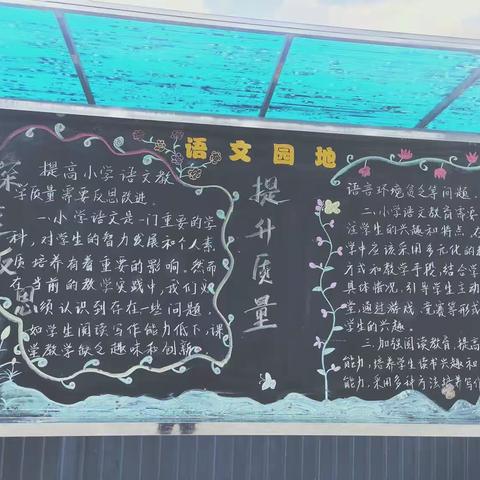 语文园地
深
反思
提高小学语文教
学质量需要反思改进.
一.小学语文是一门重要的学
科,对学生的智力发展和个人素
质培养有着重要的影响。然而
在当前的教学实践中,我们必
须认识到存在一些问题
如学生阅读写作能力低下,课
堂教学缺乏趣味和创新.
提升质量
语言环境匮乏等问题.
二.小学语文教育需要
注学生的兴趣和特点,在
学中应该采用多元化的教
方式和教学手段,结合学
具体情况,引导学生主动
堂,通过游戏、竞赛等形式
学生的兴趣。
三.加强阅读教育,提高
能力,培养学生读书兴趣和
能力,采用多种方法培养写作